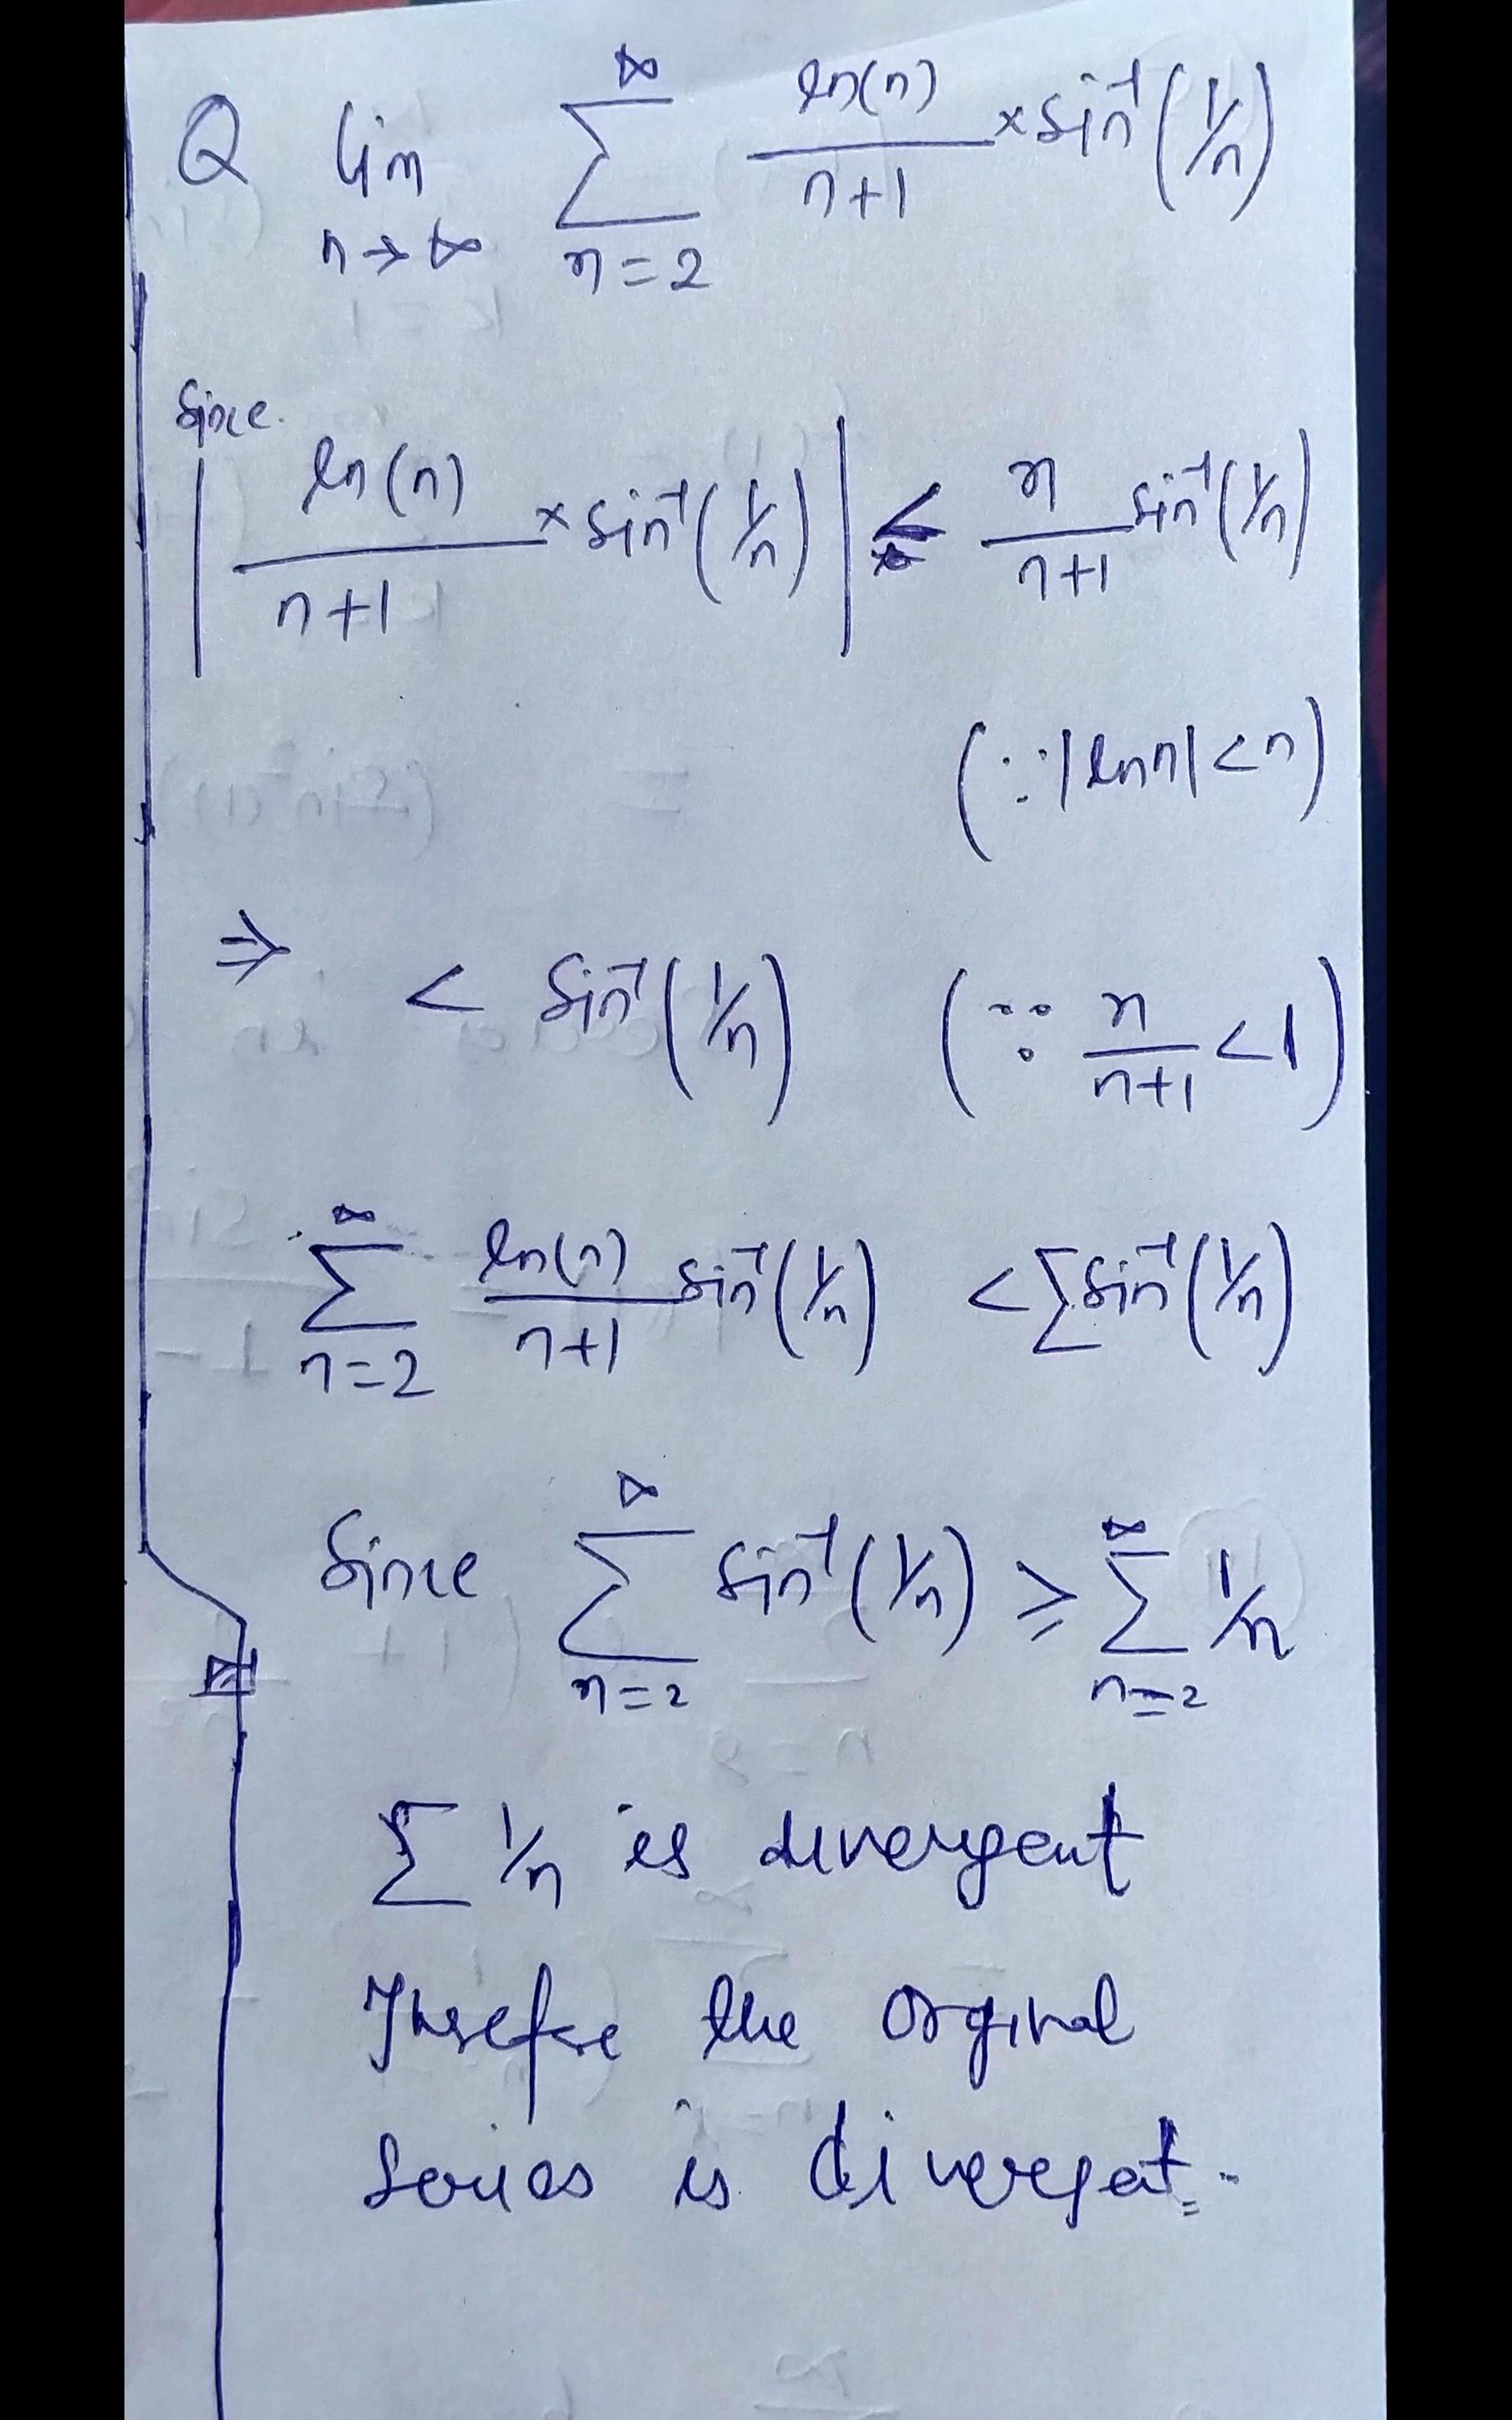 Q lim n→∞ ∞ ∑ n=2 ln(n)/n+1 × sin⁻¹(1/n)
Since
| ln(n)/n+1 × sin⁻¹(1/n) | < n/n+1 sin⁻¹(1/n)
(∵ |ln n| < n)
⇒ < sin⁻¹(1/n) (∵ n/n+1 < 1)
∞ ∑ n=2 ln(n)/n+1 sin⁻¹(1/n) < ∑ sin⁻¹(1/n)
Since ∞ ∑ n=2 sin⁻¹(1/n) ≥ ∞ ∑ n=2 1/n
∑ 1/n is divergent
Therefore the orginal
series is divergent.